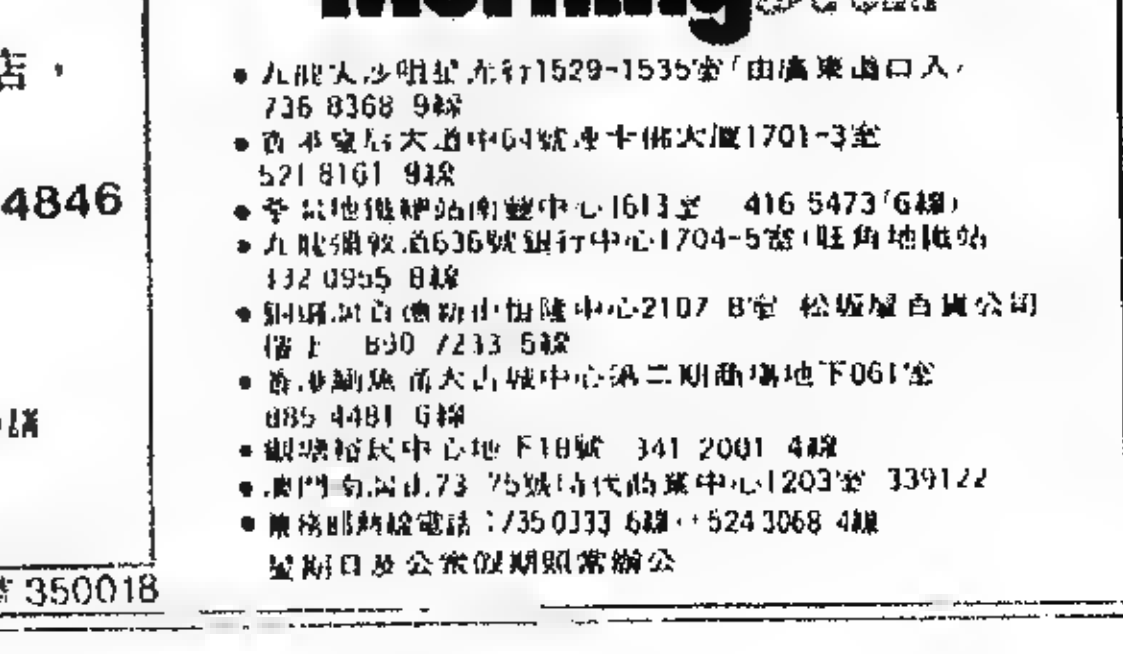 店，
4846
講
350018
Morning
● 九龍尖沙咀星光行1529-1535室「由廣東道口入」
736 8368 9線
● 香港皇后大道中64號連卡佛大廈1701-3室
521 8161 9線
● 荃灣地鐵總站南豐中心1613室 416 5473「6線」
● 九龍彌敦道636號銀行中心1704-5室(旺角地鐵站
0955 8線
● 銅鑼灣百德新街恒隆中心2107 B室 松坂屋百貨公司
樓上 890 7233 6線
● 香港鰂魚涌太古城中心第二期商場地下061室
885 4481 6線
● 觀塘裕民中心地下18號 341 2001 4線
● 澳門 73 75號時代商業中心1203室 339122
● 熱線電話：735 0333 6線 524 3068 4線
星期日及公眾假期照常辦公